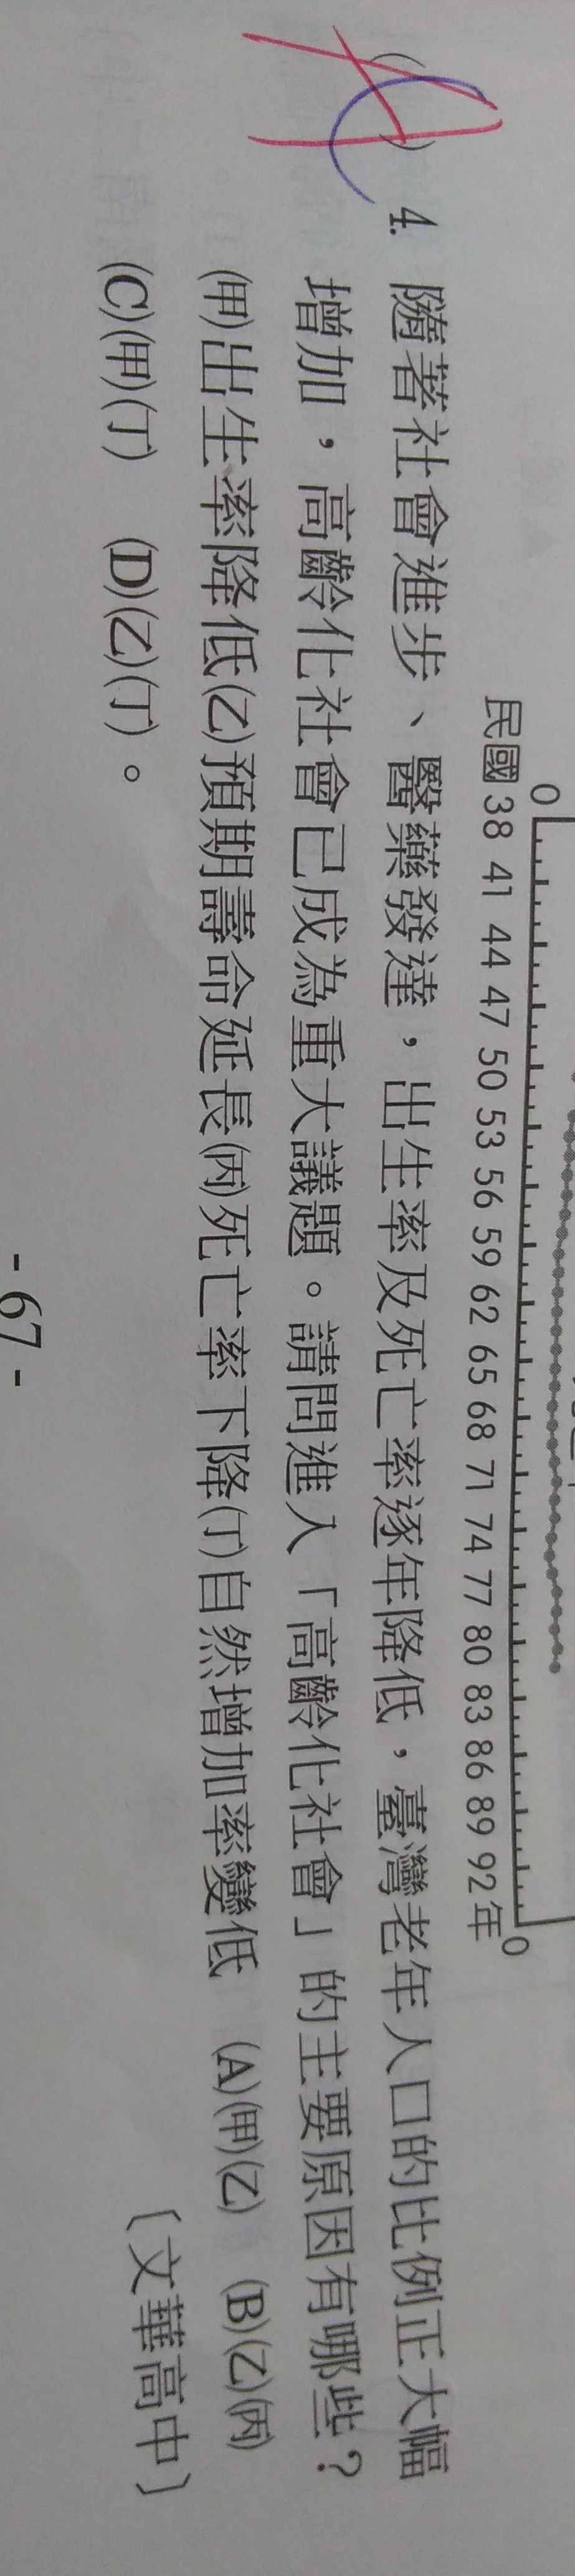 0 0
民國 38 41 44 47 50 53 56 59 62 65 68 71 74 77 80 83 86 89 92年
( C ) 4. 隨著社會進步、醫藥發達，出生率及死亡率逐年降低，臺灣老年人口的比例正大幅
增加，高齡化社會已成為重大議題。請問進入「高齡化社會」的主要原因有哪些？
(甲)出生率降低(乙)預期壽命延長(丙)死亡率下降(丁)自然增加率變低 (A)(甲)(乙) (B)(乙)(丙)
(C)(甲)(丁) (D)(乙)(丁)。 〔文華高中〕
A
- 67 -